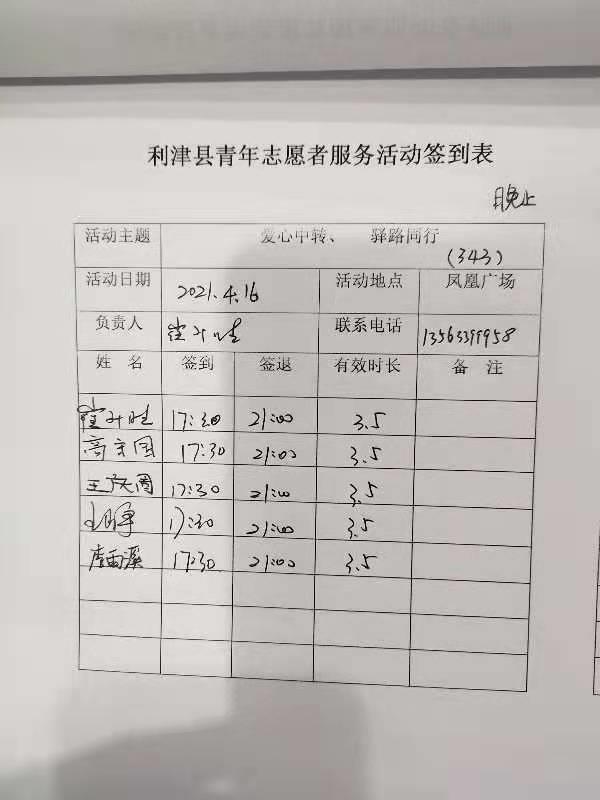 利津县青年志愿者服务活动签到表
晚上
活动主题 爱心中转、 驿路同行
(343)
活动日期 2021.4.16 活动地点 凤凰广场
负责人 联系电话 13563399958
姓名 签到 签退 有效时长 备注
17:30 21:00 3.5
17:30 21:00 3.5
17:30 21:00 3.5
17:30 21:00 3.5
李雨溪 17:30 21:00 3.5